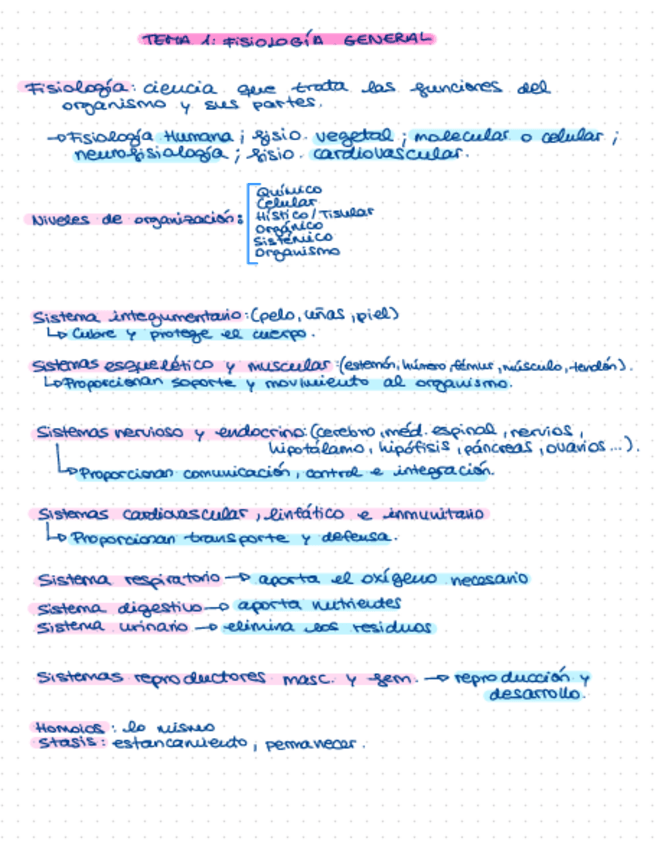 TEMA 1: FISIOLOGÍA GENERAL
Fisiología: ciencia que trata las funciones del
organismo y sus partes.
→ Fisiología Humana; fisio. vegetal; molecular o celular;
neurofisiología; fisio. cardiovascular.
Niveles de organización:
Químico
Celular
Hístico / Tisular
Orgánico
Sistémico
Organismo
Sistema integumentario: (pelo, uñas, piel)
↳ Cubre y protege el cuerpo.
Sistemas esquelético y muscular: (esternón, húmero, fémur, músculo, tendón).
↳ Proporcionan soporte y movimiento al organismo.
Sistemas nervioso y endocrino: (cerebro, méd. espinal, nervios,
hipotálamo, hipófisis, páncreas, ovarios...).
↳ Proporcionan comunicación, control e integración.
Sistemas cardiovascular, linfático e inmunitario
↳ Proporcionan transporte y defensa.
Sistema respiratorio → aporta el oxígeno necesario
Sistema digestivo → aporta nutrientes
Sistema urinario → elimina los residuos
Sistemas reproductores masc. y fem. → reproducción y
desarrollo.
Homoios: lo mismo
Stasis: estancamiento, permanecer.